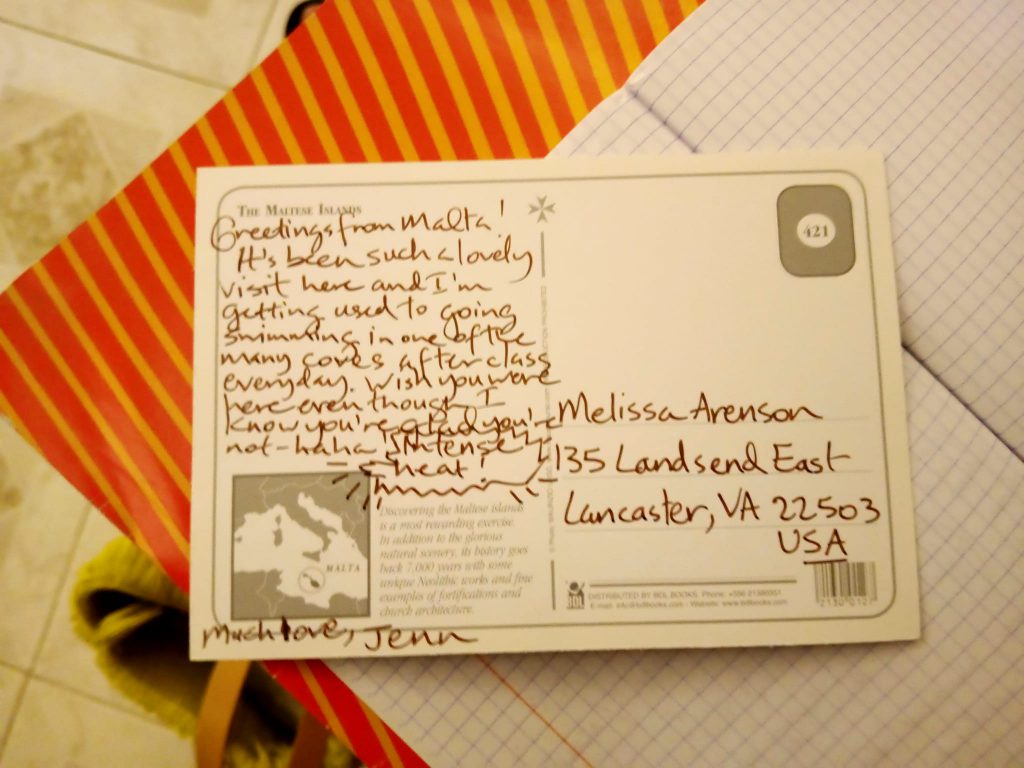 THE MALTESE ISLANDS
Greetings from Malta!
It's been such a lovely
visit here and I'm
getting used to going
swimming in one of the
many coves after class
everyday. Wish you were
here even though I
know you're glad you're
not - haha
intense
heat!
MALTA
Discovering the Maltese islands
is a most rewarding exercise.
In addition to the glorious
natural scenery, its history goes
back 7,000 years with some
unique Neolithic works and fine
examples of fortifications and
church architecture.
Much love, Jenn
421
Melissa Arenson
135 Landsend East
Lancaster, VA 22503
USA
BDL
DISTRIBUTED BY BDL BOOKS.
E-mail: info@bdlbooks.com - Website: www.bdlbooks.com